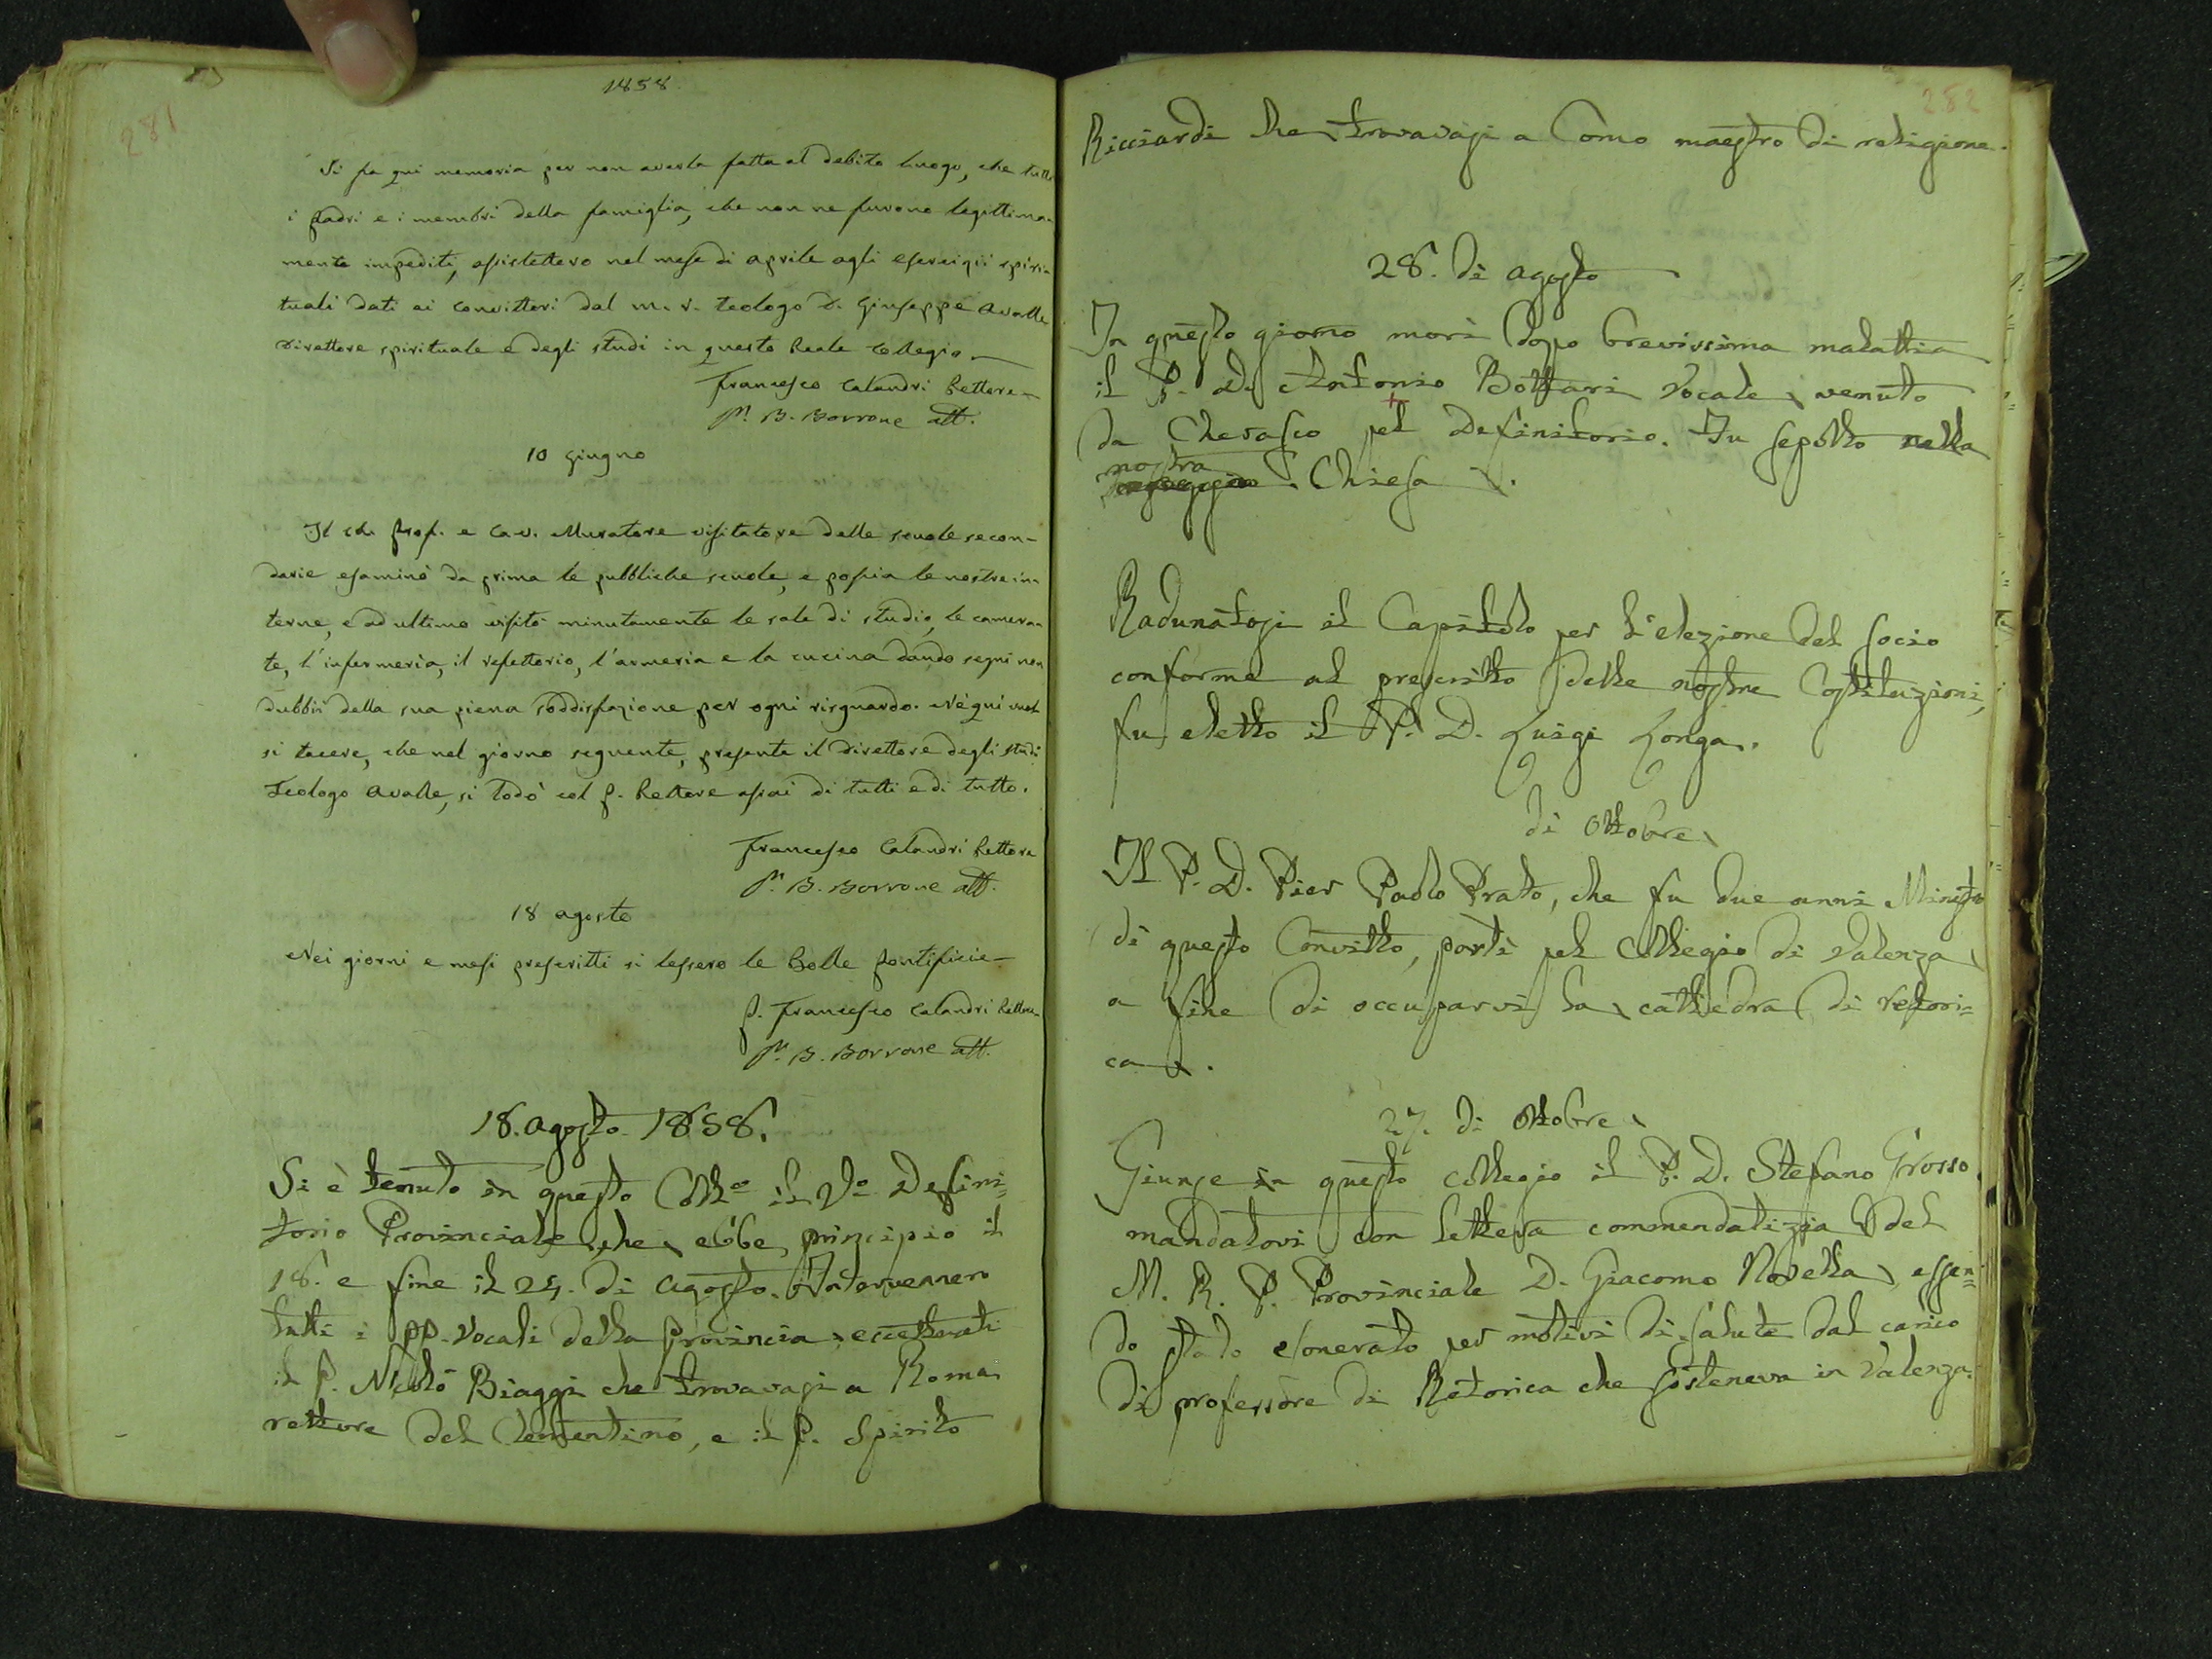 281
1858.
Si fa qui memoria per non averla fatta al debito luogo, che tutti
i padri e i membri della famiglia, che non ne furono legittima-
mente impediti, assistettero nel mese di aprile agli esercizii spiri-
tuali dati ai convittori dal m. r. teologo D. Giuseppe Avalle
direttore spirituale e degli studi in questo Reale Collegio.
Francesco Calandri Rettore
P. B. Borrone att.
10 Giugno
Il ch. Prof. e Cav. Muratore visitatore delle scuole secon-
darie esaminò da prima le pubbliche scuole, e poscia le nostre in-
terne, e ad ultimo visitò minutamente le sale di studio, le camera-
te, l'infermeria, il refettorio, l'armeria e la cucina dando segni non
dubbii della sua piena soddisfazione per ogni risguardo. Nè qui vuol
si tacere, che nel giorno seguente, presente il direttore degli studi
Teologo Avalle, si lodò col P. Rettore assai di tutti e di tutto.
Francesco Calandri Rettore
P. B. Borrone att.
18 agosto
Nei giorni e mesi prescritti si lessero le Bolle Pontificie
P. Francesco Calandri Rettore
P. B. Borrone att.
18. Agosto 1858.
Si è tenuto in questo Collo il Vo Defini=
torio Provinciale, che ebbe principio il
18. e fine il 24. di Agosto. Intervennero
tutti i PP. Vocali della Provincia, eccettuati
il P. Nicolò Biaggi che trovavasi a Roma
rettore del Clementino, e il P. Spirito
282
Ricciardi che trovavasi a Como maestro di religione.
28. di agosto
In questo giorno morì dopo brevissima malattia
il P. D. Antonio Bottari Vocale, venuto
da Cherasco pel Definitorio. Fu sepolto nella
nostra
Chiesa.
Radunatosi il Capitolo per l'elezione del Socio
conforme al prescritto delle nostre Costituzioni,
fu eletto il P. D. Luigi Longa.
di Ottobre
Il P. D. Pier Paolo Prato, che fu due anni Ministro
di questo Convitto, partì pel Collegio di Valenza
a fine di occuparvi la cattedra di retori=
ca.
27. di Ottobre
Giunse in questo collegio il P. D. Stefano Grosso
mandatovi con lettera commendatizia del
M. R. P. Provinciale D. Giacomo Novella, essen=
do stato esonerato per motivi di salute dal carico
di professore di Retorica che sosteneva in Valenza.